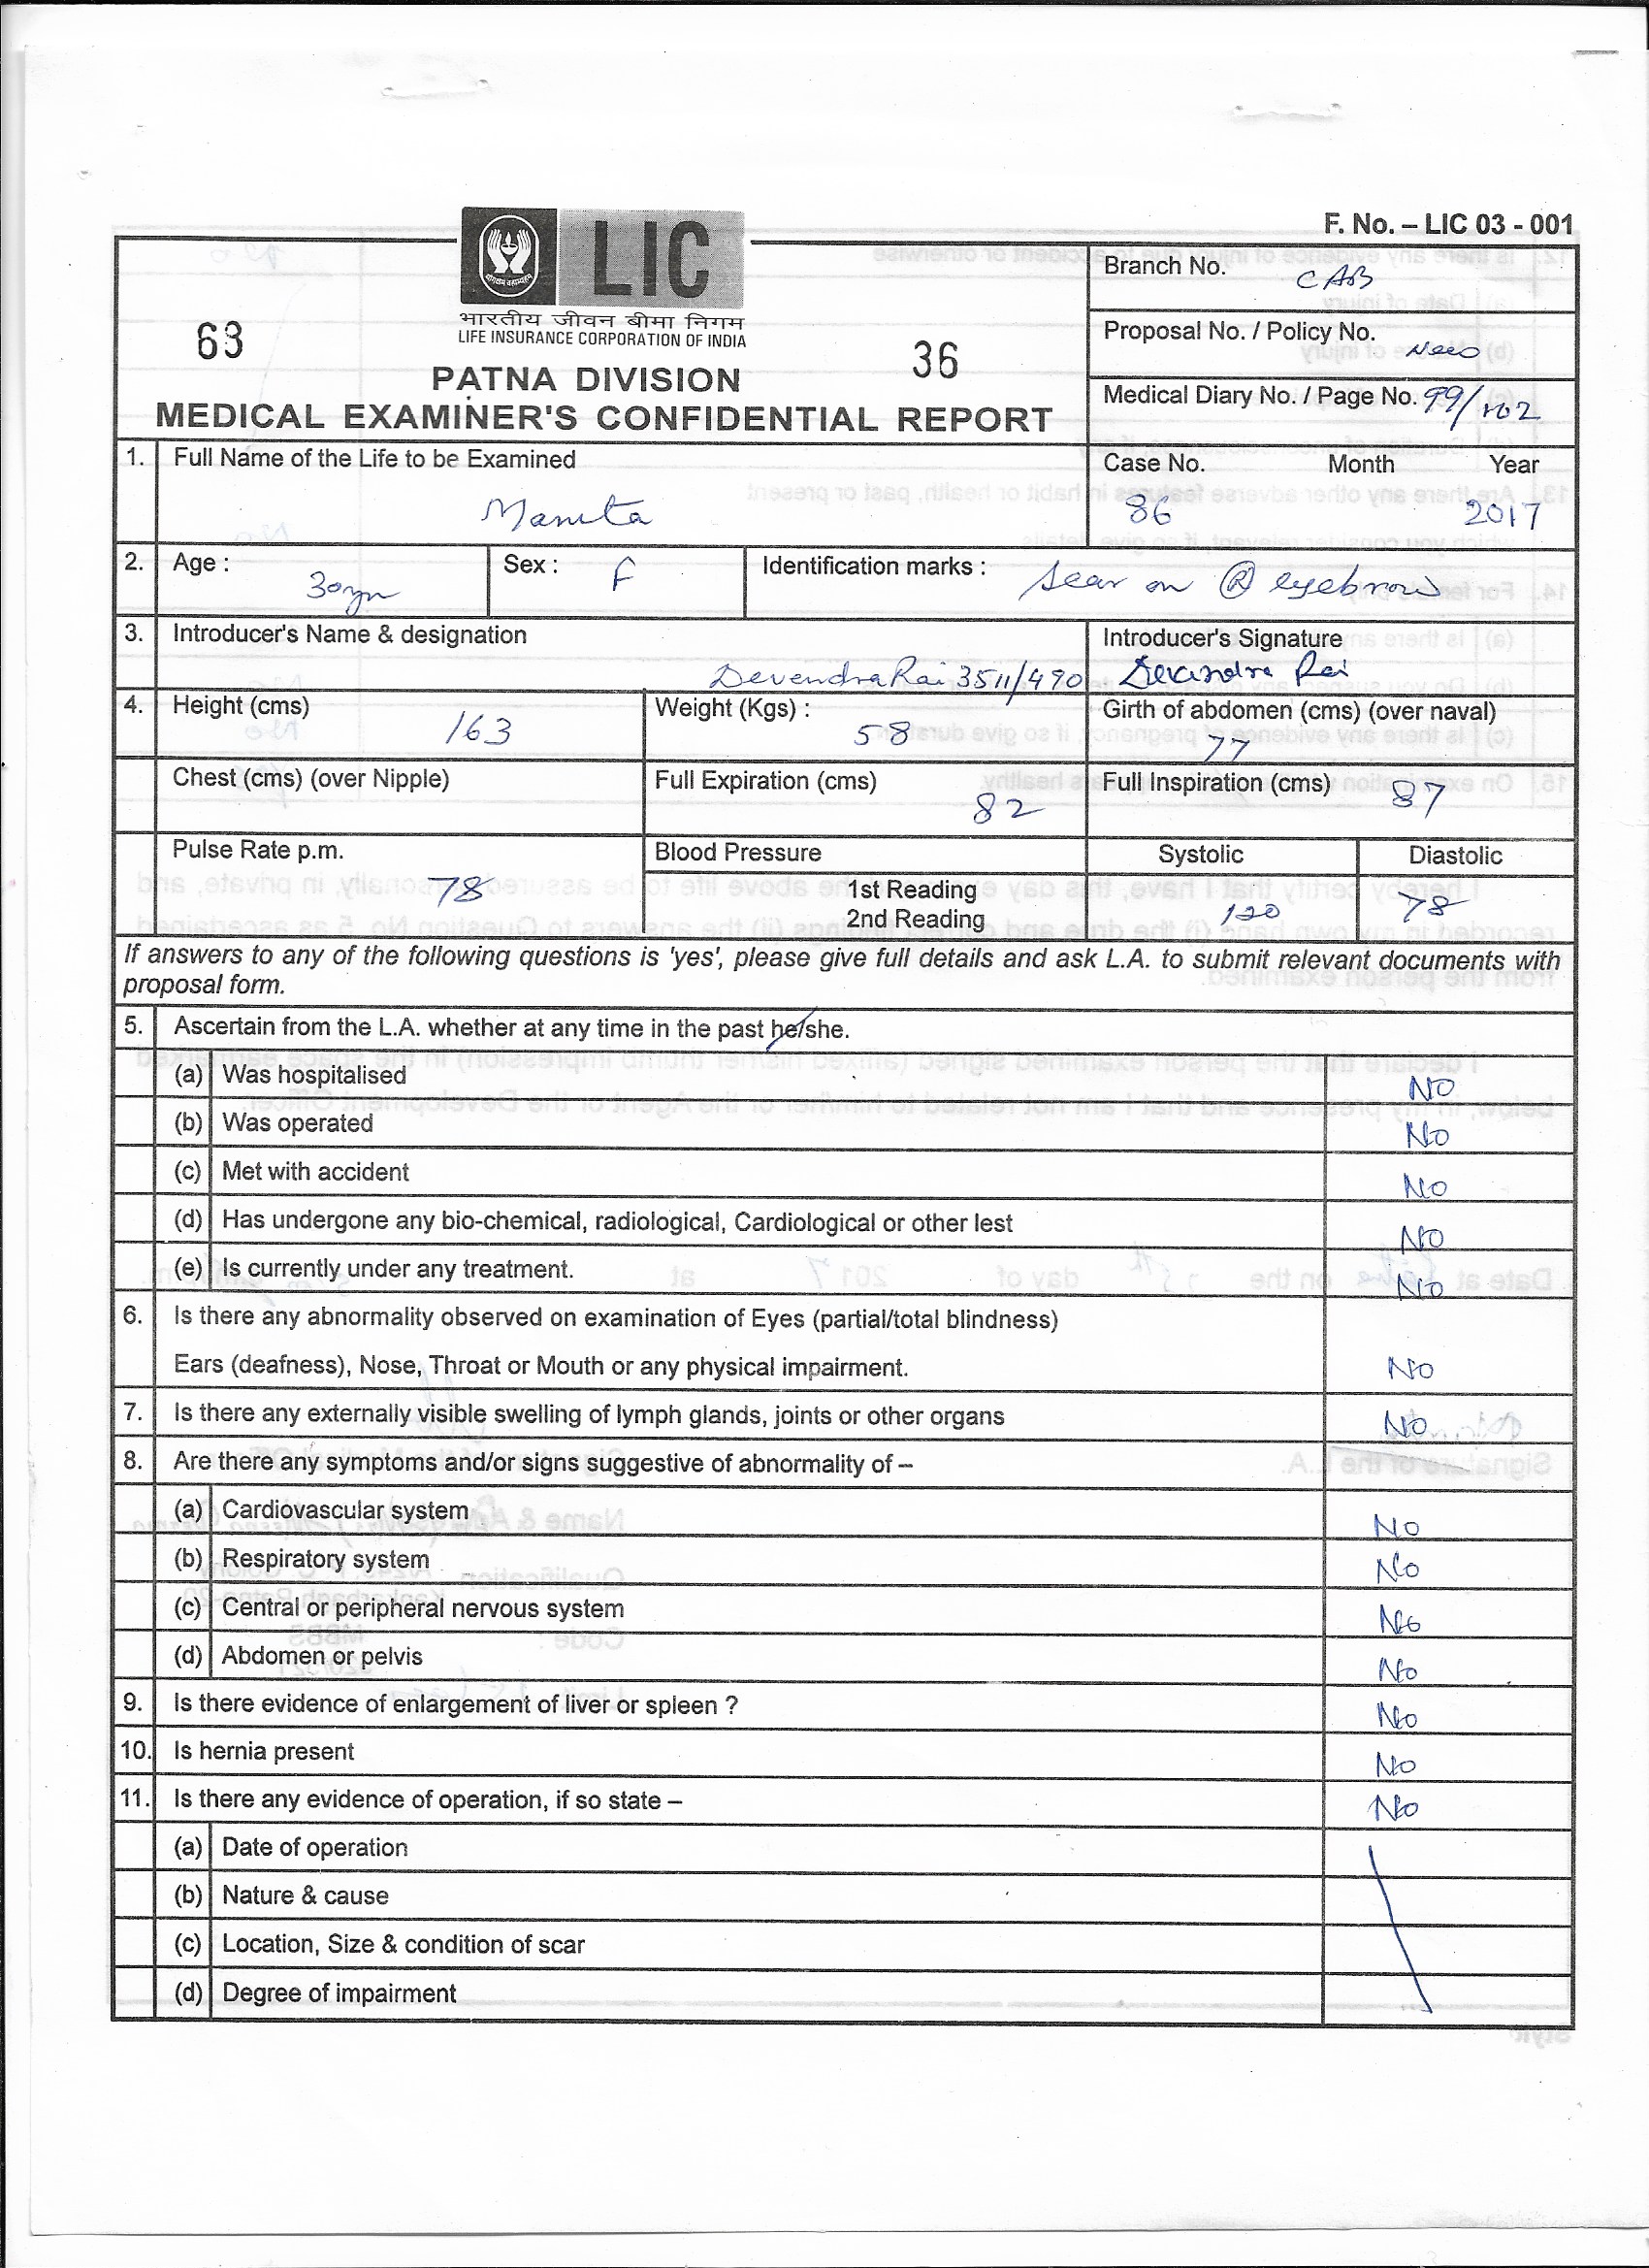 F. No. – LIC 03 - 001
LIC
भारतीय जीवन बीमा निगम
LIFE INSURANCE CORPORATION OF INDIA
63
36
PATNA DIVISION
MEDICAL EXAMINER'S CONFIDENTIAL REPORT
Branch No. CAB
Proposal No. / Policy No. New
Medical Diary No. / Page No. 99/102
1. Full Name of the Life to be Examined
Mamta
Case No. Month Year
86 2017
2. Age : 30yrs Sex : F Identification marks : scar on (R) eyebrow
3. Introducer's Name & designation
Devendra Rai 3511/490
Introducer's Signature
Devendra Rai
4. Height (cms) 163 Weight (Kgs) : 58 Girth of abdomen (cms) (over naval)
77
Chest (cms) (over Nipple) Full Expiration (cms) 82 Full Inspiration (cms) 87
Pulse Rate p.m. 78 Blood Pressure Systolic Diastolic
1st Reading
2nd Reading 120 78
If answers to any of the following questions is 'yes', please give full details and ask L.A. to submit relevant documents with
proposal form.
5. Ascertain from the L.A. whether at any time in the past he/she.
(a) Was hospitalised NO
(b) Was operated No
(c) Met with accident No
(d) Has undergone any bio-chemical, radiological, Cardiological or other lest NO
(e) Is currently under any treatment. No
6. Is there any abnormality observed on examination of Eyes (partial/total blindness)
Ears (deafness), Nose, Throat or Mouth or any physical impairment. No
7. Is there any externally visible swelling of lymph glands, joints or other organs No
8. Are there any symptoms and/or signs suggestive of abnormality of –
(a) Cardiovascular system No
(b) Respiratory system No
(c) Central or peripheral nervous system No
(d) Abdomen or pelvis No
9. Is there evidence of enlargement of liver or spleen ? No
10. Is hernia present No
11. Is there any evidence of operation, if so state – No
(a) Date of operation
(b) Nature & cause
(c) Location, Size & condition of scar
(d) Degree of impairment